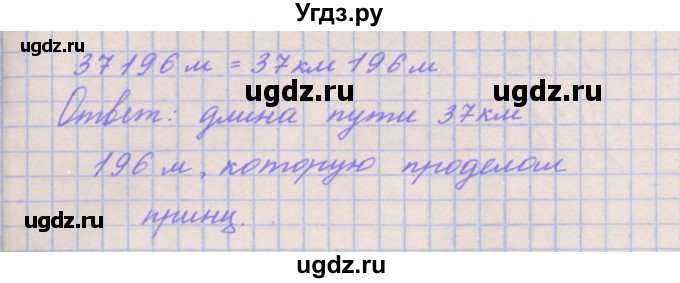 Угдз.ру
ugdz.ru
ugdz.ru
37196 м = 37 км 196 м
ugdz.ru
ugdz.ru
Ответ: длина пути 37 км
196 м, которую проделал
ugdz.ru
ugdz.ru
принц.
ugdz.ru